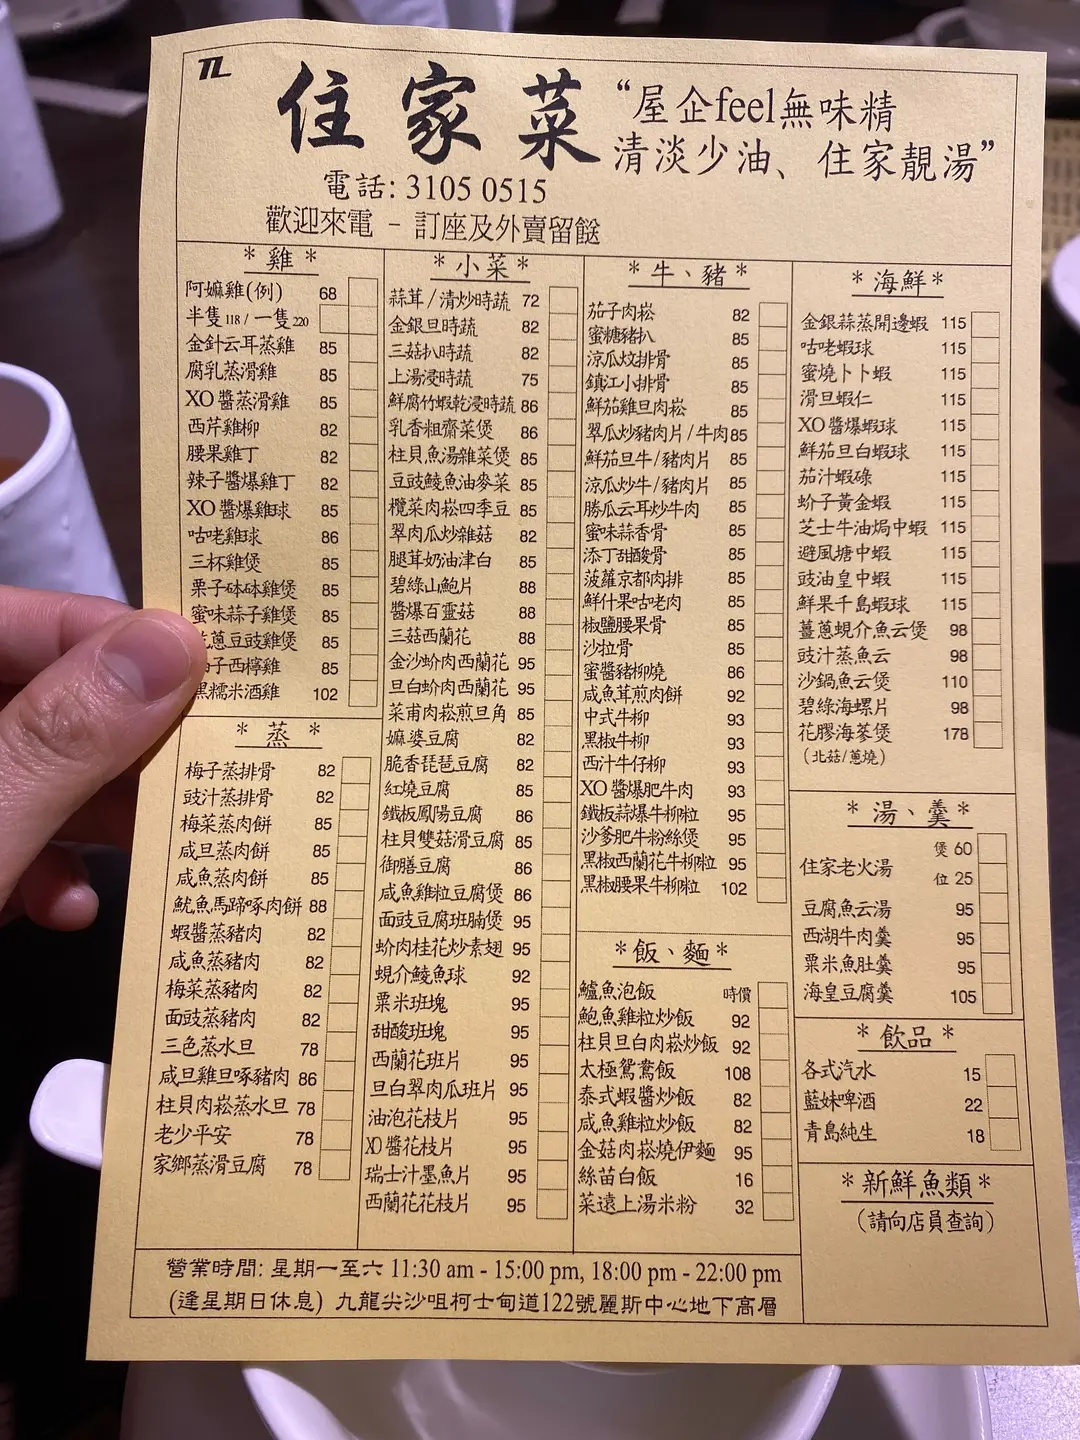 TL
住家菜
“屋企feel無味精
清淡少油、住家靚湯”
電話: 3105 0515
歡迎來電 - 訂座及外賣留餸
* 雞 *
阿嫲雞(例) 68
半隻118 / 一隻220
金針云耳蒸雞 85
腐乳蒸滑雞 85
XO醬蒸滑雞 85
西芹雞柳 82
腰果雞丁 82
辣子醬爆雞丁 82
XO醬爆雞球 85
咕咾雞球 86
三杯雞煲 85
栗子砵砵雞煲 85
蜜味蒜子雞煲 85
蔥豆豉雞煲 85
子西檸雞 85
黑糯米酒雞 102
* 蒸 *
梅子蒸排骨 82
豉汁蒸排骨 82
梅菜蒸肉餅 85
咸旦蒸肉餅 85
咸魚蒸肉餅 85
魷魚馬蹄啄肉餅 88
蝦醬蒸豬肉 82
咸魚蒸豬肉 82
梅菜蒸豬肉 82
面豉蒸豬肉 82
三色蒸水旦 78
咸旦雞旦啄豬肉 86
柱貝肉崧蒸水旦 78
老少平安 78
家鄉蒸滑豆腐 78
* 小菜 *
蒜茸/清炒時蔬 72
金銀旦時蔬 82
三菇扒時蔬 82
上湯浸時蔬 75
鮮腐竹蝦乾浸時蔬 86
乳香粗齋菜煲 86
柱貝魚湯雜菜煲 85
豆豉鯪魚油麥菜 85
欖菜肉崧四季豆 85
翠肉瓜炒雜菇 82
腿茸奶油津白 85
碧綠山鮑片 88
醬爆百靈菇 88
三菇西蘭花 88
金沙蚧肉西蘭花 95
旦白蚧肉西蘭花 95
菜甫肉崧煎旦角 85
嫲婆豆腐 82
脆香琵琶豆腐 82
紅燒豆腐 85
鐵板鳳陽豆腐 86
柱貝雙菇滑豆腐 85
御膳豆腐 86
咸魚雞粒豆腐煲 86
面豉豆腐班腩煲 95
蚧肉桂花炒素翅 95
蜆介鯪魚球 92
粟米班塊 95
甜酸班塊 95
西蘭花班片 95
旦白翠肉瓜班片 95
油泡花枝片 95
XO醬花枝片 95
瑞士汁墨魚片 95
西蘭花花枝片 95
* 牛、豬 *
茄子肉崧 82
蜜糖豬扒 85
涼瓜炆排骨 85
鎮江小排骨 85
鮮茄雞旦肉崧 85
翠瓜炒豬肉片/牛肉 85
鮮茄旦牛/豬肉片 85
涼瓜炒牛/豬肉片 85
勝瓜云耳炒牛肉 85
蜜味蒜香骨 85
添丁甜酸骨 85
菠蘿京都肉排 85
鮮什果咕咾肉 85
椒鹽腰果骨 85
沙拉骨 85
蜜醬豬柳燒 86
咸魚茸煎肉餅 92
中式牛柳 93
黑椒牛柳 93
西汁牛仔柳 93
XO醬爆肥牛肉 93
鐵板蒜爆牛柳粒 95
沙爹肥牛粉絲煲 95
黑椒西蘭花牛柳粒 95
黑椒腰果牛柳粒 102
* 飯、麵 *
鱸魚泡飯 時價
鮑魚雞粒炒飯 92
柱貝旦白肉崧炒飯 92
太極鴛鴦飯 108
泰式蝦醬炒飯 82
咸魚雞粒炒飯 82
金菇肉崧燒伊麵 95
絲苗白飯 16
菜遠上湯米粉 32
* 海鮮 *
金銀蒜蒸開邊蝦 115
咕咾蝦球 115
蜜燒卜卜蝦 115
滑旦蝦仁 115
XO醬爆蝦球 115
鮮茄旦白蝦球 115
茄汁蝦碌 115
蚧子黃金蝦 115
芝士牛油焗中蝦 115
避風塘中蝦 115
豉油皇中蝦 115
鮮果千島蝦球 115
薑蔥蜆介魚云煲 98
豉汁蒸魚云 98
沙鍋魚云煲 110
碧綠海螺片 98
花膠海蔘煲 178
(北菇/蔥燒)
* 湯、羹 *
煲 60
住家老火湯
位 25
豆腐魚云湯 95
西湖牛肉羹 95
粟米魚肚羹 95
海皇豆腐羹 105
* 飲品 *
各式汽水 15
藍妹啤酒 22
青島純生 18
* 新鮮魚類 *
(請向店員查詢)
營業時間: 星期一至六 11:30 am - 15:00 pm, 18:00 pm - 22:00 pm
(逢星期日休息) 九龍尖沙咀柯士甸道122號麗斯中心地下高層